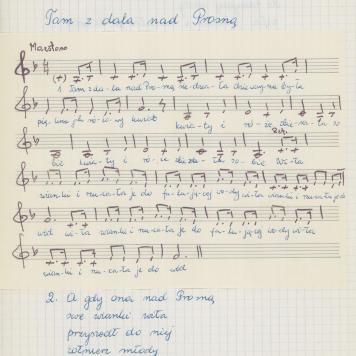 Tam z dala nad Prosną
Marszowo
1. Tam z da-la nad Pro-sną sie-dzia-ła dziewczyna by-ła
pię-kna jak ró-żo-wy kwiat kwia-ty i ró-że zbie-ra-ła so
bie kwia-ty i ró-że zbie-ra-ła so-bie wi-ła
wianki i rzu-ca-ła je do fa-lu-ją-cej wo-dy wi-ła wianki i rzu-ca-ła je do
wód wi-ła wianki i rzu-ca-ła je do fa-lu-ją-cej wo-dy wi-ła
wian-ki i rzu-ca-ła je do wód
2. A gdy ona nad Prosną
swe wianki wiła
przyszedł do niej
żołnierz młody